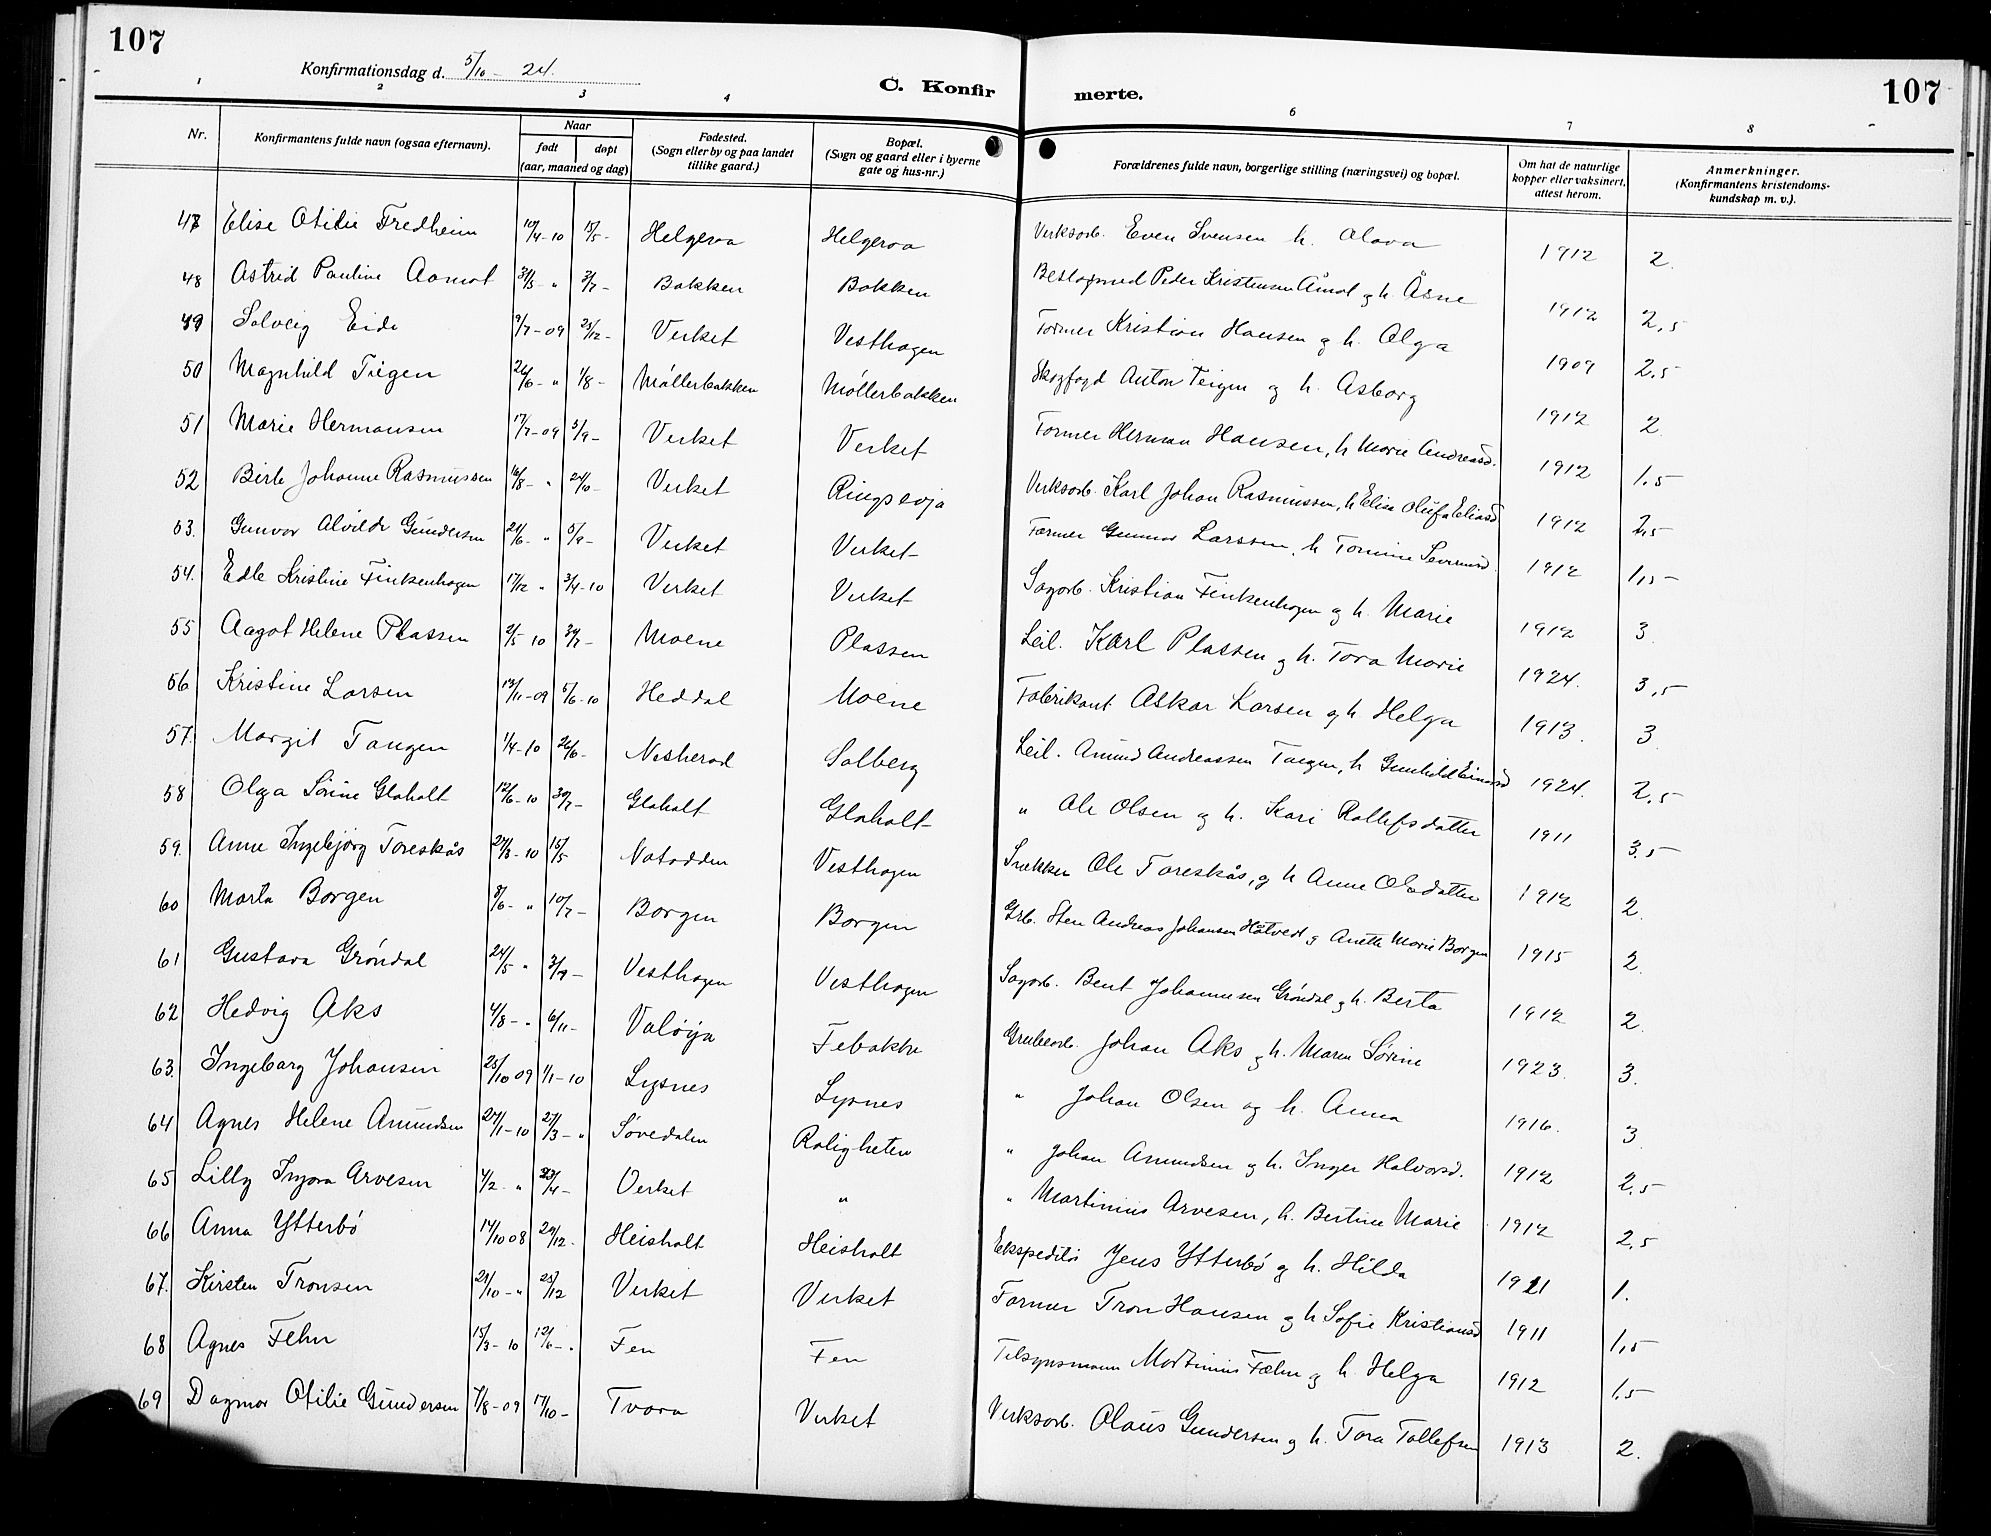 107
107
Konfirmationsdag d. 5/10 - 24.
C. Konfir merte.
1 2 3 4 6 7 8
Nr. Konfirmantens fulde navn (ogsaa efternavn). Naar født døpt (aar, maaned og dag) Fødested. (Sogn eller by og paa landet tillike gaard.) Bopæl. (Sogn og gaard eller i byerne gate og hus-nr.) Forældrenes fulde navn, borgerlige stilling (næringsvei) og bopæl. Om hat de naturlige kopper eller vaksinert, attest herom. Anmerkninger. (Konfirmantens kristendomskundskap m. v.).
47 Elise Otilie Fredheim 10/4-10 15/5- Helgeroa Helgeroa Verksarb. Even Svensen h. Olava 1912 2.
48 Astrid Pauline Aamot 31/5 - " 3/7- Bakken Bakken Beslagsmed Peder Kristensen Åmot og h. Åsne 1912 2,5
49 Solveig Eide 9/7-09 25/12- Verket Vesthagen Former Kristian Hansen og h. Olga 1909 2,5
50 Magnhild Teigen 26/6- " 1/8- Møllerbakken Møllerbakken Skogfogd Anton Teigen og h. Asborg 1912 2.
51 Marie Hermansen 17/7-09 5/9- Verket Verket Former Herman Hansen, h Marie Andreasd. 1912 1.5
52 Birte Johanne Rasmussen 16/8- " 24/10- Verket Ringsevja Verksarb. Karl Johan Rasmussen, h Elise Olufa Eliasd 1912 2,5
53. Gunvor Alvilde Gundersen 21/6- " 5/9- Verket Verket Former Gunnar Larssen, h Tomine Severinsd. 1912 1,5
54. Edle Kristine Finkenhagen 17/12 " 3/4-10 Verket Verket Sagarb. Kristian Finkenhagen og h. Marie 1912 3.
55 Aagot Helene Plassen 2/5 10 31/7- Moene Plassen Leil. Karl Plassen og h. Tora Marie 1924. 3,5
56 Kristine Larsen 13/11-09 5/6-10 Heddal Moene Fabrikant Askar Larsen og h Helga 1913. 3.
57. Margit Tangen 1/4-10 26/6- Nesherad Solberg Leil. Amund Andreassen Tangen, h Gunhild Einarsd 1924. 2,5
58 Olga Sørine Glaholt 12/6-10 30/7- Glaholt Glaholt " Ole Olsen og h. Kari Rollefsdatter 1911 3.5
59. Anne Ingebjørg Toreskås 27/3-10 15/5 Notodden Vesthagen Snekker Ole Toreskås, og h Anne Olsdatter 1912 2.
60 Marta Borgen 8/6- " 10/7- Borgen Borgen Grb. Sten Andreas Johansen Håtvedt og Anette Marie Borgen 1915 2.
61 Gustava Grøndal 24/5- " 3/9- Vesthagen Vesthagen Sagarb. Bent Johannesen Grøndal og h. Berta 1912 2.
62 Hedvig Aks 4/8- " 6/11- Valøya Febakke Grubearb. Johan Aks og h. Maren Sørine 1923. 3.
63. Ingeborg Johansen 25/10 09 1/1-10 Lysnes Lysnes " Johan Olsen og h. Anna 1916. 3.
64 Agnes Helene Amundsen 27/1-10 27/3- " Søvedalen Roligheten " Johan Amundsen og h. Inger Halvorsd. 1912 2,5
65 Lilly Ingora Arvesen 4/2- " 23/4- Verket " " Martinius Arvesen, h. Bertine Marie 1912 2,5
66 Anna Ytterbø 14/10 08 29/12. Heisholt Heisholt Ekspeditør Jens Ytterbø og h. Hilda 1921 1.
67. Kirsten Tronsen 21/10- " 25/12 Verket Verket Former Tron Hansen og h Sofie Kristiansd 1911 1,5
68 Agnes Fehn 15/3-10 12/6- . Fen Fen Tilsynsmann Martinius Fæhn og h. Helga 1912 1.5
69 Dagmar Otilie Gundersen 7/8-09 17/10- Tvara Verket Verksarb. Olaus Gundersen og h. Tora Tollefsen 1913 2.